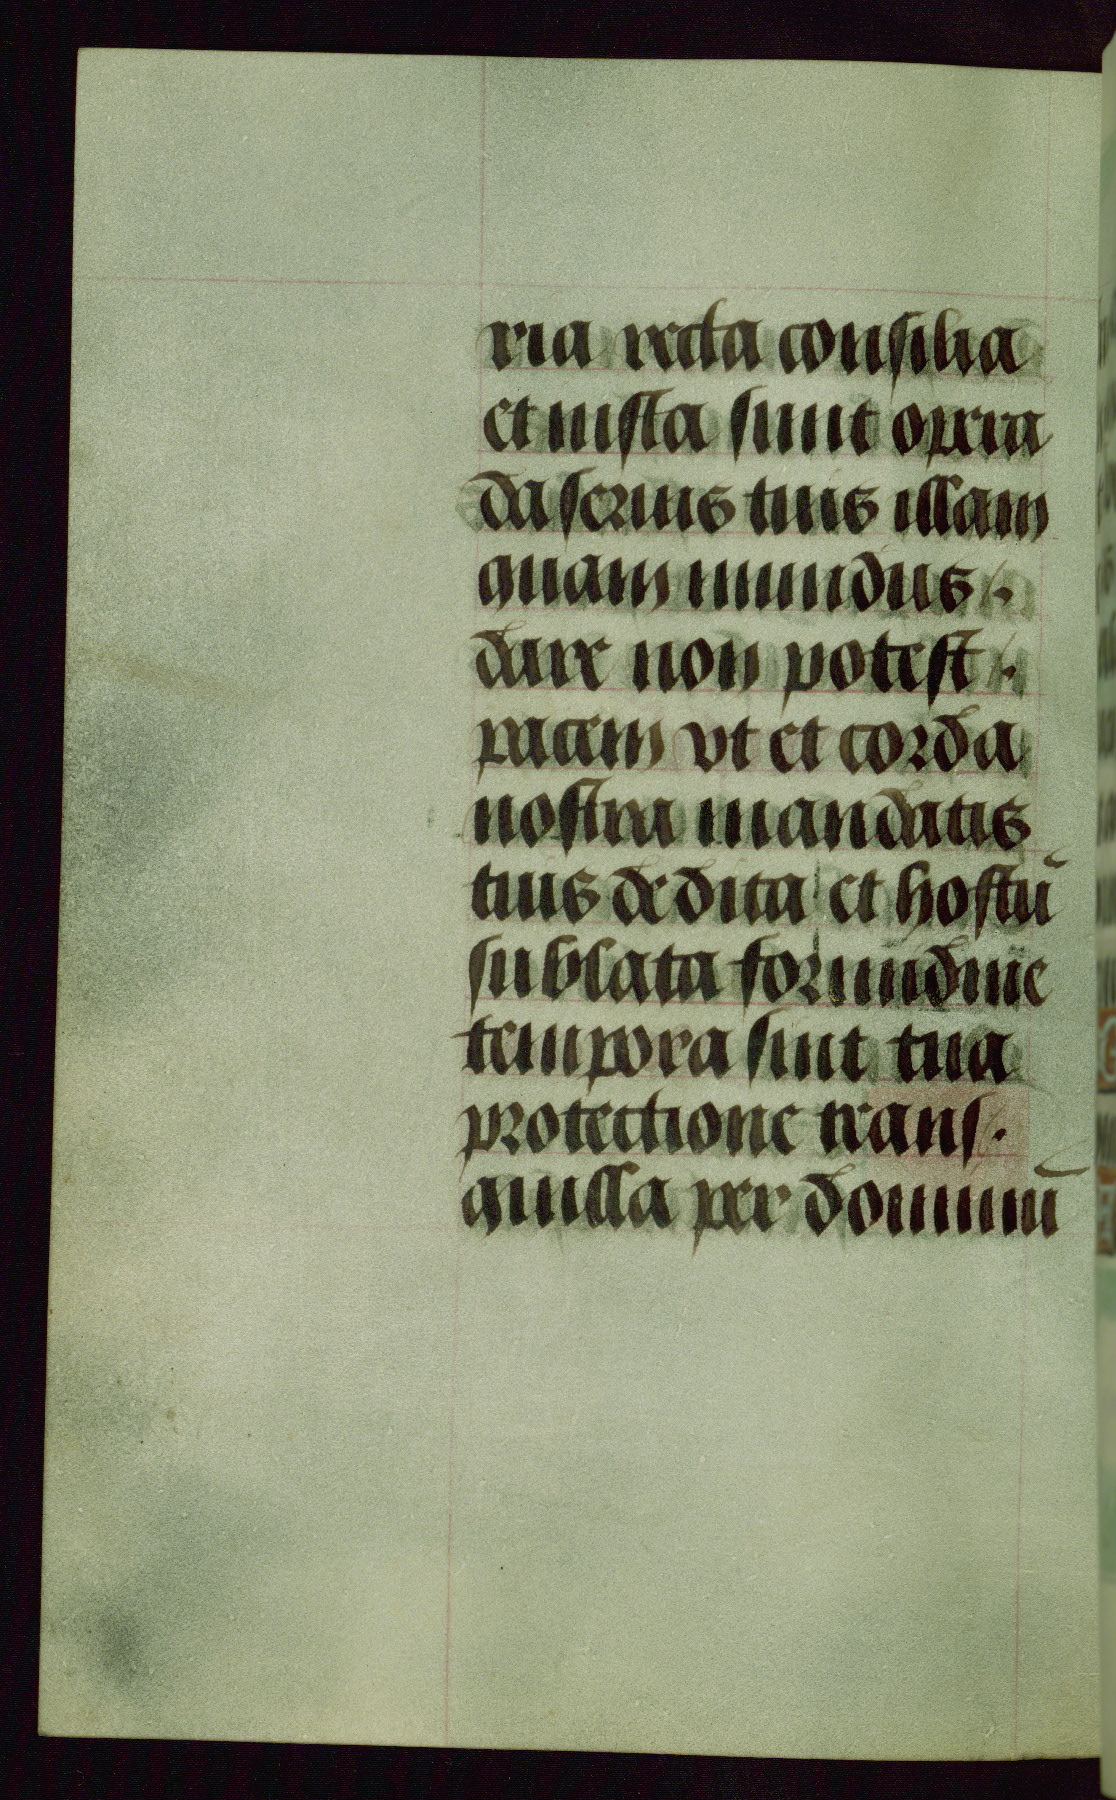 ria recta consilia
et iusta sunt opera
da seruis tuis illam
quam mundus /.
dare non potest /.
pacem vt et corda
nostra mandatis
tuis dedita et hostiū
sublata formidine
tempora sint tua
protectione trans/.
quilla per dominū